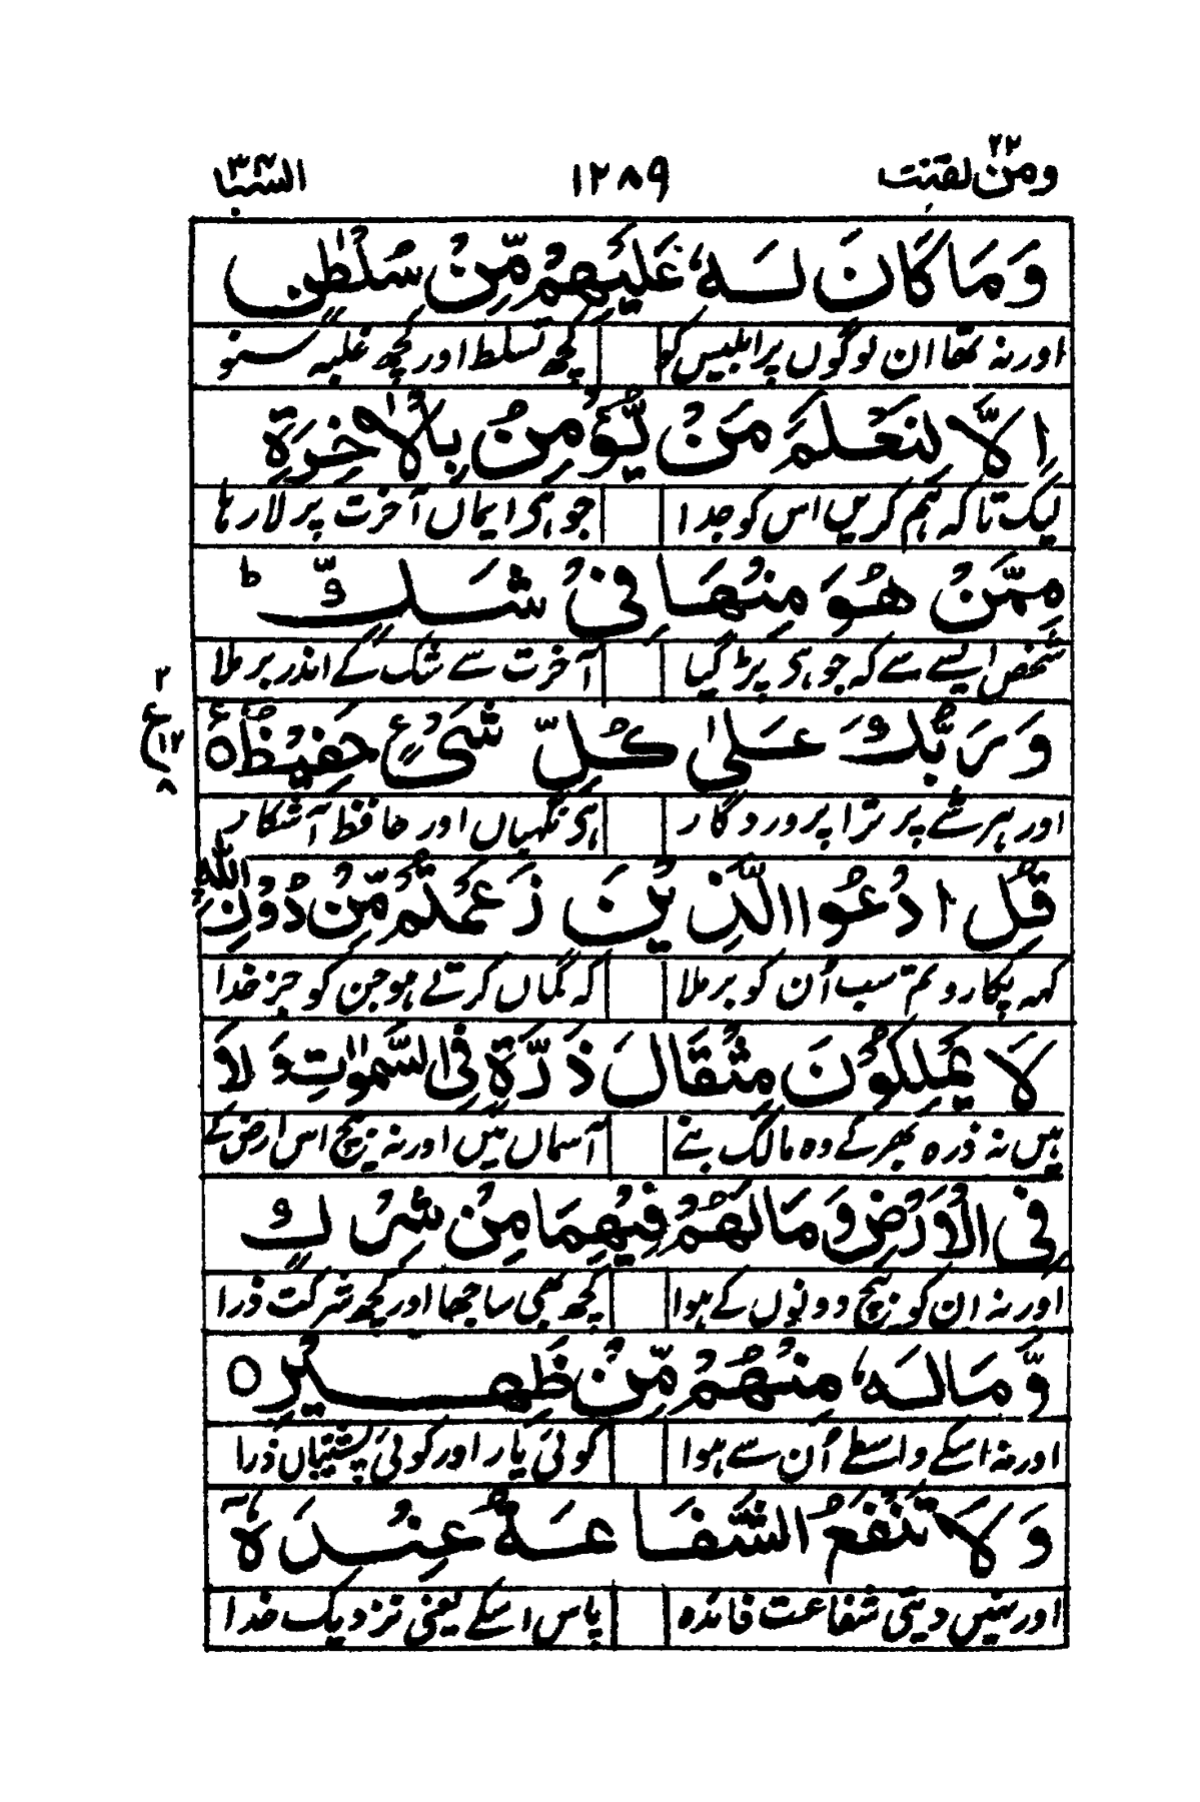 ومن یقنت ٢٢ ١٢٨٩ السبا ٣٤
وَمَا كَانَ لَهٗ عَلَیْهِمْ مِّنْ سُلْطٰنٍ
اور نہ تھا ان لوگوں پر ابلیس کو کچھ تسلط اور کچھ غلبہ سنو
اِلَّا لِنَعْلَمَ مَنْ یُّؤْمِنُ بِالْاٰخِرَةِ
لیک تا کہ ہم کریں اس کو جدا جو ہی ایماں آخرت پر لا رہا
مِمَّنْ هُوَ مِنْهَا فِیْ شَكٍّ ؕ
شخص ایسے سے کہ جو ہی پڑ گیا آخرت سے شک کے اندر برملا
وَ رَبُّكَ عَلٰى كُلِّ شَیْءٍ حَفِیْظٌ۠ ○
٢ ع ١٢ ٨
اور ہر شے پر ترا پروردگار ہی نگہباں اور حافظ آشکار
قُلِ ادْعُوا الَّذِیْنَ زَعَمْتُمْ مِّنْ دُوْنِ اللّٰهِ
کہہ پکارو تم سب اُن کو برملا کہ گماں کرتے ہو جن کو جز خدا
لَا یَمْلِكُوْنَ مِثْقَالَ ذَرَّةٍ فِی السَّمٰوٰتِ وَ لَا
ہیں نہ ذرہ بھر کے وہ مالک بنے آسماں میں اور نہ بیچ اس ارض کے
فِی الْاَرْضِ وَ مَا لَهُمْ فِیْهِمَا مِنْ شِرْكٍ
اور نہ ان کو بیچ دونوں کے ہوا کچھ بھی ساجھا اور کچھ شرکت ذرا
وَّ مَا لَهٗ مِنْهُمْ مِّنْ ظَهِیْرٍ ○
اور نہ اسکے واسطے اُن سے ہوا کوئی یار اور کوئی پشتیباں ذرا
وَ لَا تَنْفَعُ الشَّفَاعَةُ عِنْدَهٗۤ
اور نہیں دیتی شفاعت فائدہ پاس اسکے یعنی نزدیک خدا